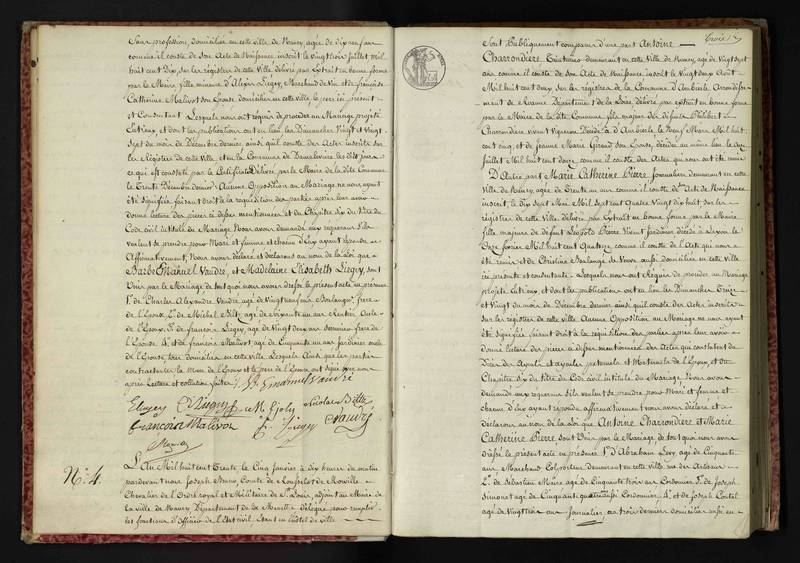 Sans profession, domiciliée en cette ville de Nancy, agée de dix neuf ans
comme il conste de son Acte de Naissance inscrit le vingt trois juillet Mil
huit cent Dix, sur les registres de cette Ville délivré par Extrait en bonne forme
par le Maire, fille mineure de Liegey, Marchand de Vin et de françoise
Catherine Malivot son Epouse domiciliés en cette ville, le père ici présent
et Consentant. Lesquels nous ont requis de procéder au Mariage projeté
Entr'eux et dont les publications ont eu lieu les Dimanches Vingt et Vingt
Sept du mois de Décembre dernier ainsi qu'il conste des Actes inscrits sur
les Registres de cette ville et en la Commune de les dits jours
ce qui est constaté par le Certificat délivré par le Maire de la dite Commune
le Trente Décembre dernier. Aucune Opposition au Mariage ne nous ayant
été signifiée, faisant droit à la requisition des parties après leur avoir
donné lecture des pièces ci dessus mentionnées et du Chapitre dix du titre du
Code civil intitulé du Mariage. Nous avons demandé aux requérans s'ils
veulent se prendre pour Mari et femme et chacun d'Eux ayant répondu
Affirmativement, Nous avons déclaré et déclarons au nom de la loi que
Vaudré, et Madelaine Elisabeth Liegey, sont
Unis par le Mariage de tout quoi nous avons dressé le présent acte en présence
1° de Charles Alexandre Vaudré agé de Vingt neuf ans, Boulanger, frère
de l'Epoux, 2° de Michel agé de Soixante un ans Rentier, Oncle
de l'Epoux, 3° de françois Liegey, agé de Vingt deux ans Serrurier frère de
l'Epouse, 4° et de françois Malivot agé de Cinquante un ans Jardinier oncle
de l'Epouse, tous domiciliés en cette ville Lesquels Ainsi que les parties
contractantes la Mère de l'Epoux et le père de l'Epouse ont signé avec nous
après Lecture et collation faites.
Liegey
françois Malivot
N° 4.
L'An Mil huit cent Trente le Cinq Janvier à dix heures du matin
pardevant nous Joseph Comte de
Chevalier de l'Ordre royal et Militaire de St Louis, adjoint au Maire de
la ville de Nancy Département de la Meurthe délégué pour remplir
les fonctions d'Officier de l'Etat civil, étant en l'hôtel de Ville
Sont Publiquement comparus d'une part Antoine
Charrondière, Teinturier demeurant en cette ville de Nancy, agé de Vingt sept
ans comme il conste de son Acte de Naissance inscrit le Vingt deux Août
Mil huit cent deux sur les registres de la Commune d'Ambierle Arrondisse-
ment de Roanne Département de la Loire, délivré par extrait en bonne forme
par le Maire de la dite Commune, fils majeur des défunts Philibert
Charrondière vivant Vigneron Décédé à Ambierle le Neuf Mars Mil huit
cent cinq, et de Jeanne Marie Giraud son Epouse, décédée au même lieu le Dix
Juillet Mil huit cent douze, comme il conste des Actes qui nous ont été remis
D'Autre part Marie Catherine Pierre Journalière demeurant en cette
ville de Nancy, agée de Trente un ans comme il conste de son Acte de Naissance
inscrit le dix Sept Mai Mil Sept cent Quatre Vingt dix huit sur les
registres de cette Ville délivré par Extrait en bonne forme par le Maire
fille majeure de défunt Léopold Pierre Vivant Jardinier décédé à
Onze février Mil huit cent Quatorze, comme il conste de l'Acte qui nous a
été remis et de Christine Boulange sa Veuve aussi domiciliée en cette ville
ici présente et consentante. Lesquels nous ont requis de procéder au Mariage
projeté Entr'eux et dont les publications ont eu lieu les Dimanches Treize
et Vingt du mois de Décembre dernier ainsi qu'il conste des Actes inscrits
sur les registres de cette ville. Aucune Opposition au Mariage ne nous ayant
été signifiée, faisant droit à la réquisition des parties après leur avoir
donné lecture des pièces ci dessus mentionnées des Actes qui constatent du
Décès des Ayeuls et ayeules paternels et Maternels de l'Epoux, et du
Chapitre dix du titre du Code civil intitulé du Mariage, Nous avons
demandé aux requérans s'ils veulent se prendre pour Mari et femme et
chacun d'Eux ayant répondu affirmativement nous avons déclaré et
déclarons au nom de la loi que Antoine Charrondière et Marie
Catherine Pierre, sont Unis par le Mariage, de tout quoi nous avons
dressé le présent acte en présence 1° d'Abraham Levy, agé de Cinquante
ans Marchand Colporteur demeurant en cette ville
2° de Sébastien agé de Cinquante trois ans Cordonnier, 3° de Joseph
Simonet agé de Cinquante quatre ans Cordonnier, 4° et de Joseph
agé de vingt trois ans Journalier les trois derniers domiciliés aussi en